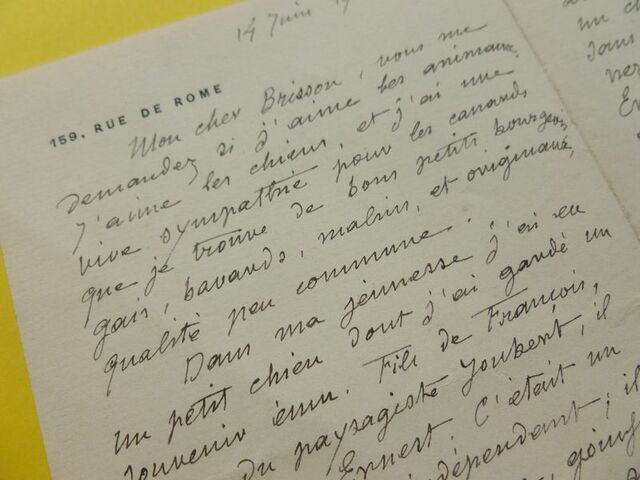 14 Juin
159. RUE DE ROME
Mon cher Brisson, vous me
demandez si j'aime les animaux.
J'aime les chiens, et j'ai une
vive sympathie pour les canards
que je trouve de bons petits bourgeois,
gais, bavards, malins, et originaux,
qualité peu commune.
Dans ma jeunesse j'ai eu
un petit chien dont j'ai gardé un
souvenir ému. Fils de François,
du paysagiste Joubert, il
Ernest. C'était un
indépendant ; il
un c
dans
ver
E